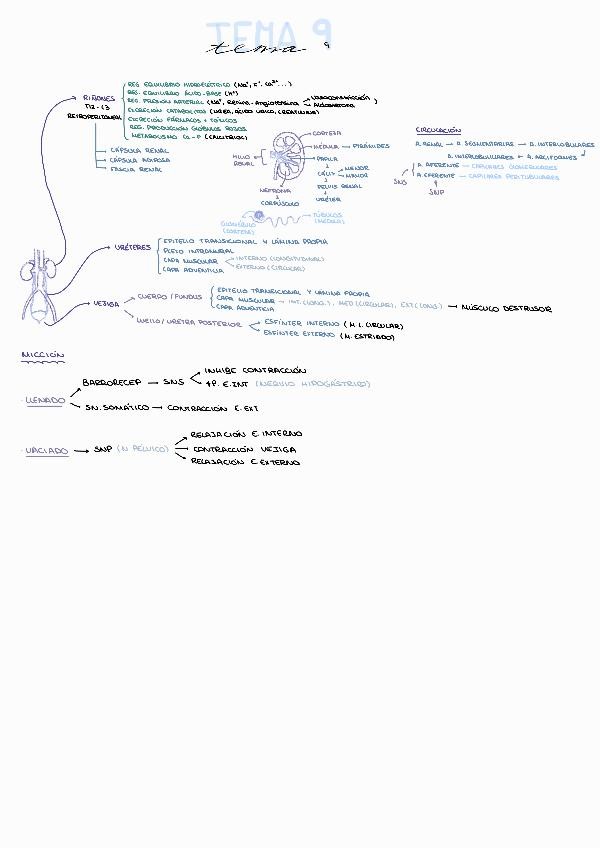 TEMA 9
tema 9
REG. EQUILIBRIO HIDROELÉCTRICO (Na⁺, K⁺, Ca²⁺...)
RIÑONES
REG. EQUILIBRIO ÁCIDO-BASE (H⁺)
T12-L3
REG. PRESIÓN ARTERIAL (Na⁺, Renina-Angiotensina
VASOCONSTRICCIÓN
ALDOSTERONA )
RETROPERITONEAL
EXCRECIÓN CATABOLITOS (UREA, ÁCIDO ÚRICO, CREATININA)
EXCRECIÓN FÁRMACOS + TÓXICOS
REG. PRODUCCIÓN GLÓBULOS ROJOS
METABOLISMO Ca-P (CALCITRIOL)
CÁPSULA RENAL
CÁPSULA ADIPOSA
FASCIA RENAL
HILIO RENAL
CORTEZA
MÉDULA → PIRÁMIDES
PAPILA
CÁLIZ
MENOR
MAYOR
PELVIS RENAL
URÉTER
NEFRONA
CORPÚSCULO
GLOMÉRULO (CORTEZA)
TÚBULOS (MÉDULA)
CIRCULACIÓN
A. RENAL → A. SEGMENTARIAS → A. INTERLOBULARES
A. INTERLOBULILLARES ← A. ARCIFORMES
A. AFERENTE → CAPILARES GLOMERULARES
SNS
A. EFERENTE → CAPILARES PERITUBULARES
SNP
URÉTERES
EPITELIO TRANSICIONAL Y LÁMINA PROPIA
PLEXO INTRAMURAL
CAPA MUSCULAR
INTERNO (LONGITUDINAL)
EXTERNO (CIRCULAR)
CAPA ADVENTICIA
VEJIGA
CUERPO / FUNDUS
EPITELIO TRANSICIONAL Y LÁMINA PROPIA
CAPA MUSCULAR → INT. (LONG.), MED (CIRCULAR), EXT (LONG.) → MÚSCULO DESTRUSOR
CAPA ADVENTICIA
CUELLO / URETRA POSTERIOR
ESFÍNTER INTERNO (M. L. CIRCULAR)
ESFÍNTER EXTERNO (M. ESTRIADO)
MICCIÓN
· LLENADO
BARRORECEP → SNS
INHIBE CONTRACCIÓN
↑P. E. INT (NERVIO HIPOGÁSTRICO)
SN. SOMÁTICO → CONTRACCIÓN E. EXT
· VACIADO → SNP (N PÉLVICO)
RELAJACIÓN E. INTERNO
CONTRACCIÓN VEJIGA
RELAJACIÓN E. EXTERNO